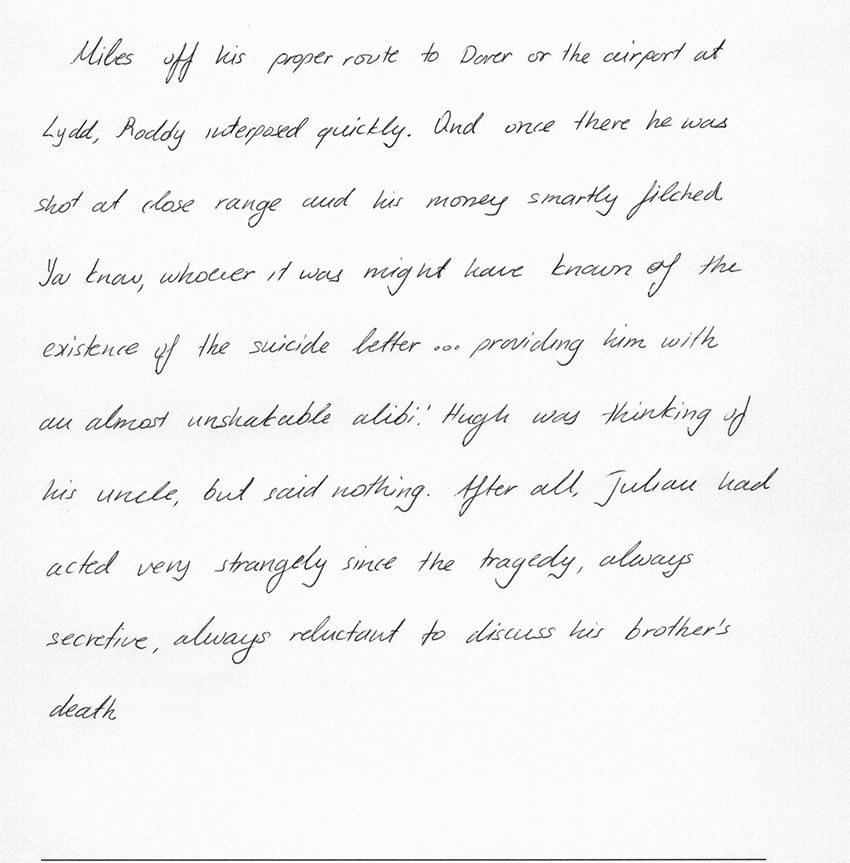 Miles off his proper route to Dover or the airport at
Lydd, Roddy interposed quickly. And once there he was
shot at close range and his money smartly filched
You know, whoever it was might have known of the
existence of the suicide letter ... providing him with
an almost unshakable alibi! Hugh was thinking of
his uncle, but said nothing. After all, Julian had
acted very strangely since the tragedy, always
secretive, always reluctant to discuss his brother's
death